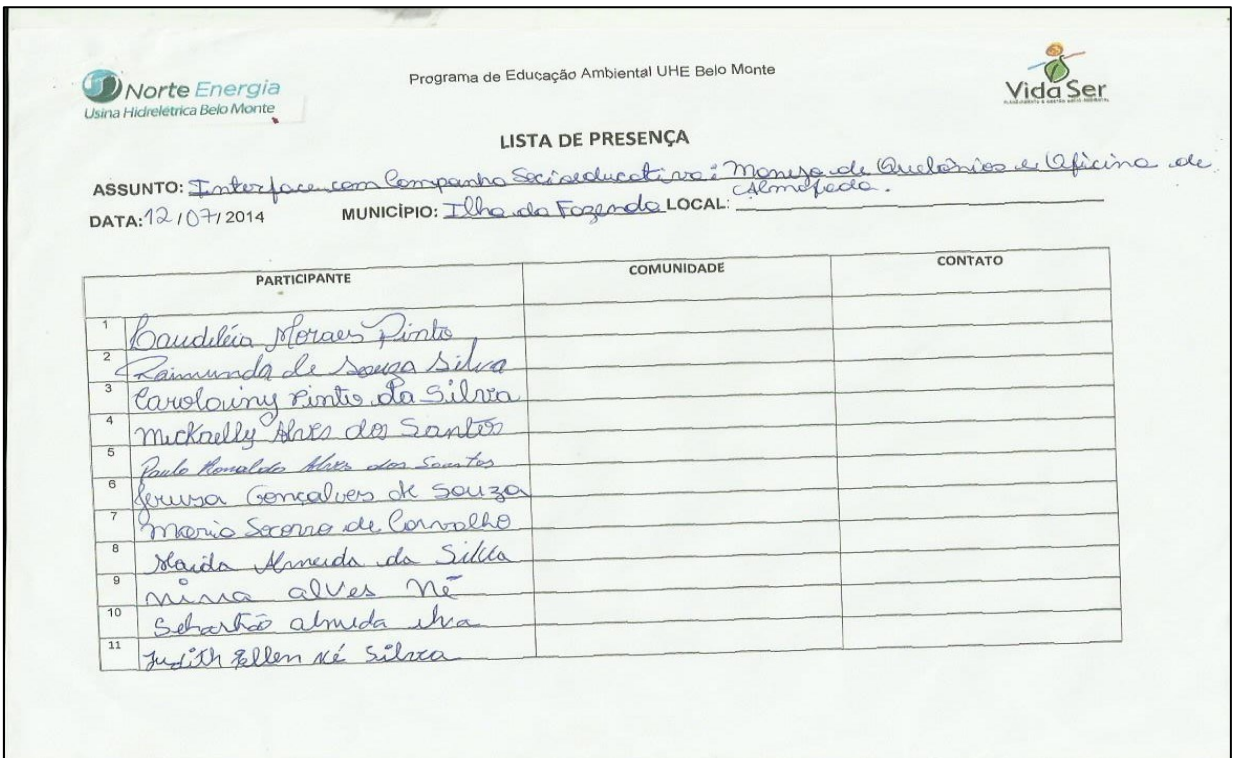 Norte Energia
Usina Hidrelétrica Belo Monte
Programa de Educação Ambiental UHE Belo Monte
Vida Ser
LISTA DE PRESENÇA
ASSUNTO: Interface com Companha Socioeducativa: Manejo de Quelônios e Oficina de
Almofada.
DATA: 12/07/2014 MUNICÍPIO: Ilha da Fazenda LOCAL:
PARTICIPANTE COMUNIDADE CONTATO
1 Moraes Pinto
2 Raimunda de Souza Silva
3 Carolainy Pinto da Silva
4 Mickaelly Alves dos Santos
5 Paulo Ronaldo Alves dos Santos
6 Jerusa Gonçalves de Souza
7 Maria Socorro de Carvalho
8 Almeida da Silva
9 alves Né
10 Sebastião almeida
11 Judith Ellen Né Silva